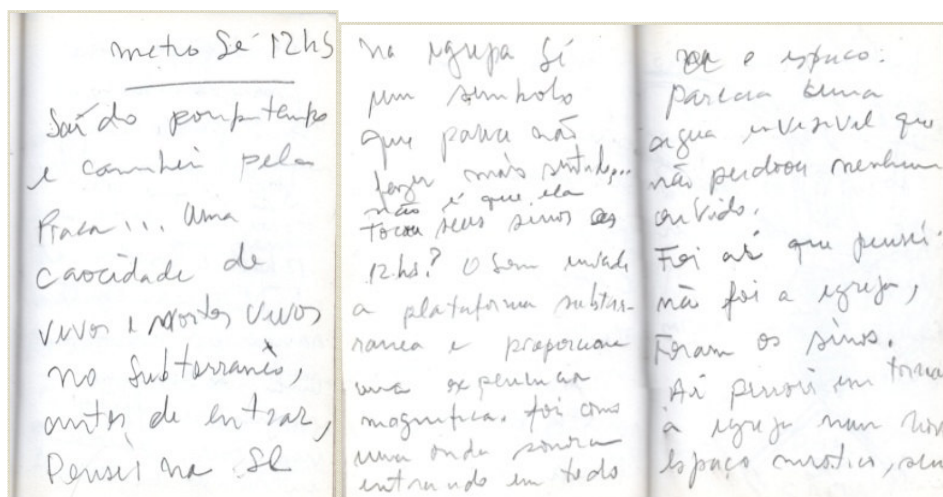 metro Sé 12hs
Saí do poupatempo
e caminhei pela
Praça... uma
cavocidade de
vivos e mortos vivos
no subterranêo,
antes de entrar,
Pensei na Sé
na igreja Sé
um simbolo
que parece não
fazer mais sentido...
não é que ela
tocou seus sinos as
12hs? O som invade
a plataforma subter-
ranea e proporciona
uma experiencia
magnifica. foi como
uma onda sonora
entrando em todo
e espaco.
parecia uma
agua invisivel que
não perdoou nenhum
ouvido.
Foi aí que pensei.
não foi a igreja,
Foram os sinos.
Aí pensei em tornar
a igreja num novo
espaço acustico, sem